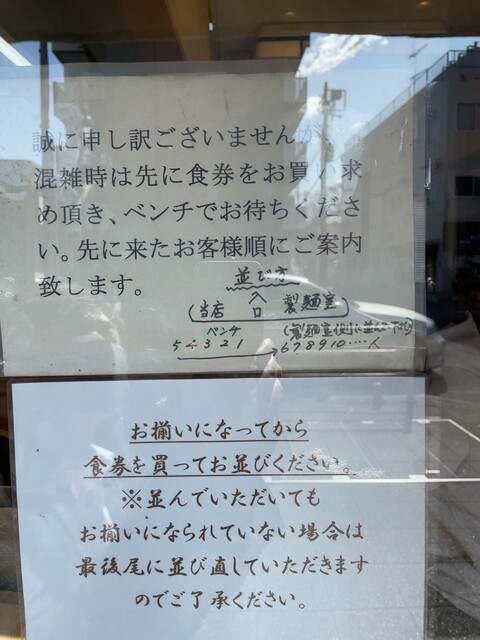 誠に申し訳ございませんが、
混雑時は先に食券をお買い求
め頂き、ベンチでお待ちくださ
い。先に来たお客様順にご案内
致します。
並び方
(当店 入口 製麺室)
ベンチ
5 4 3 2 1
6 7 8 9 10 ……人
お揃いになってから
食券を買ってお並びください。
※並んでいただいても
お揃いになられていない場合は
最後尾に並び直していただきます
のでご了承ください。